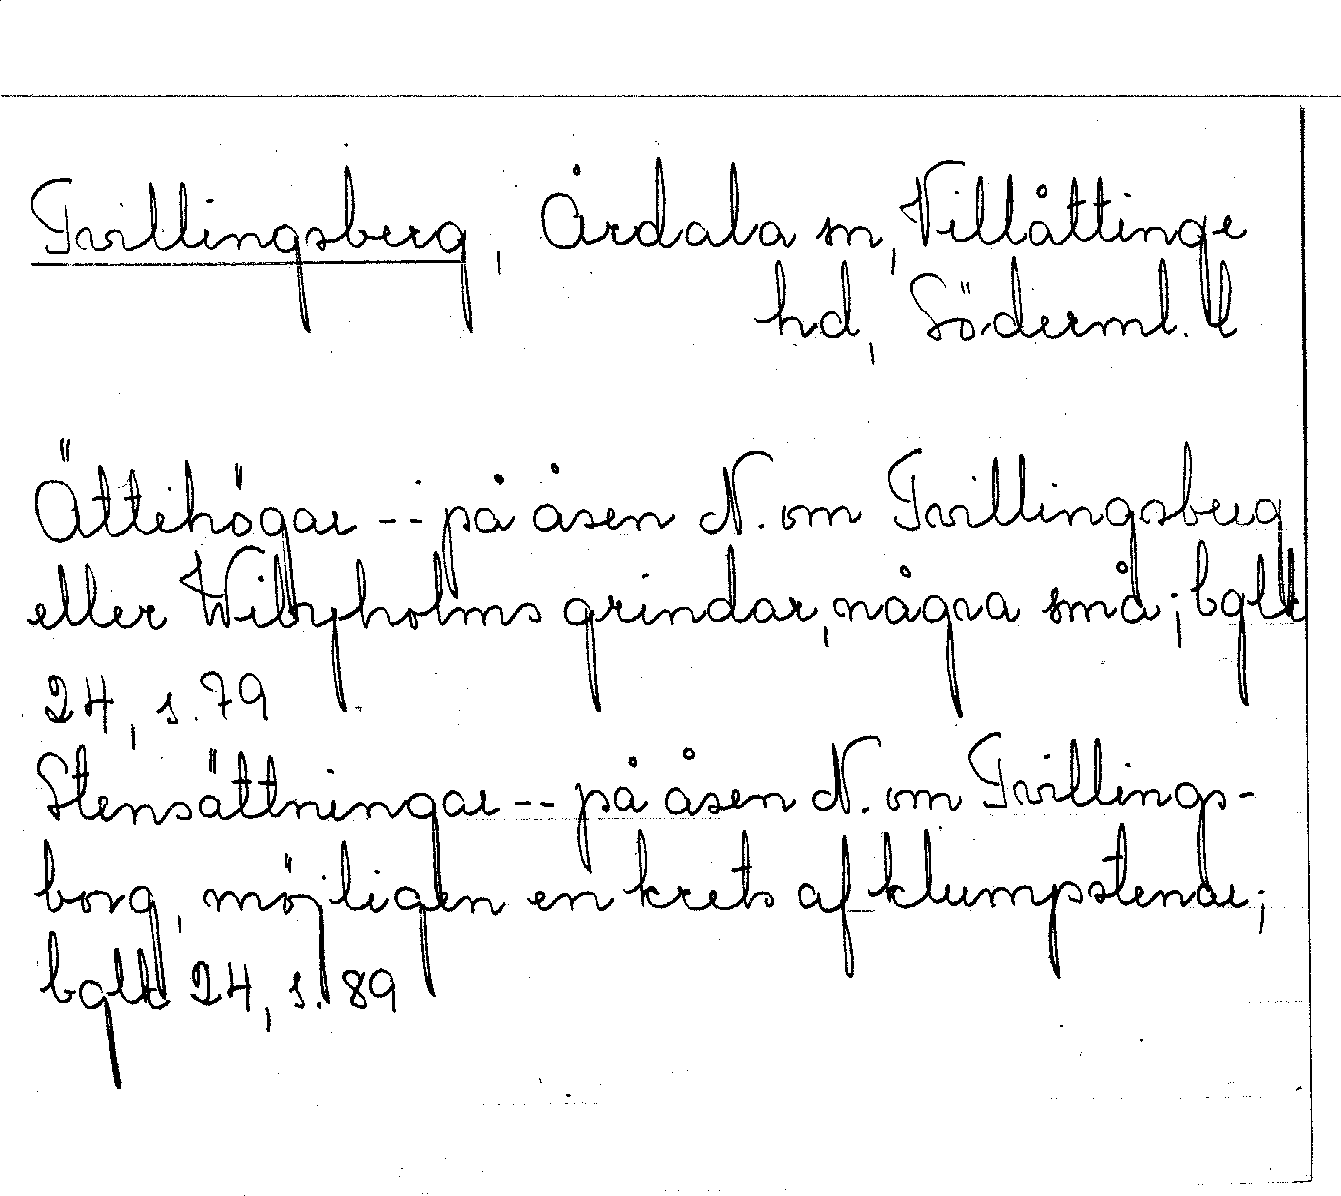 Tvillingsberg, Årdala sn, Villåttinge
hd, Söderml. l
Ättehögar -- på åsen N. om Tvillingsberg
eller Wibyholms grindar, några små; bglk
24, s. 79
Stensättningar -- på åsen N. om Tvillings-
borg, möjligen en krets af klumpstenar;
bglk 24, s. 89